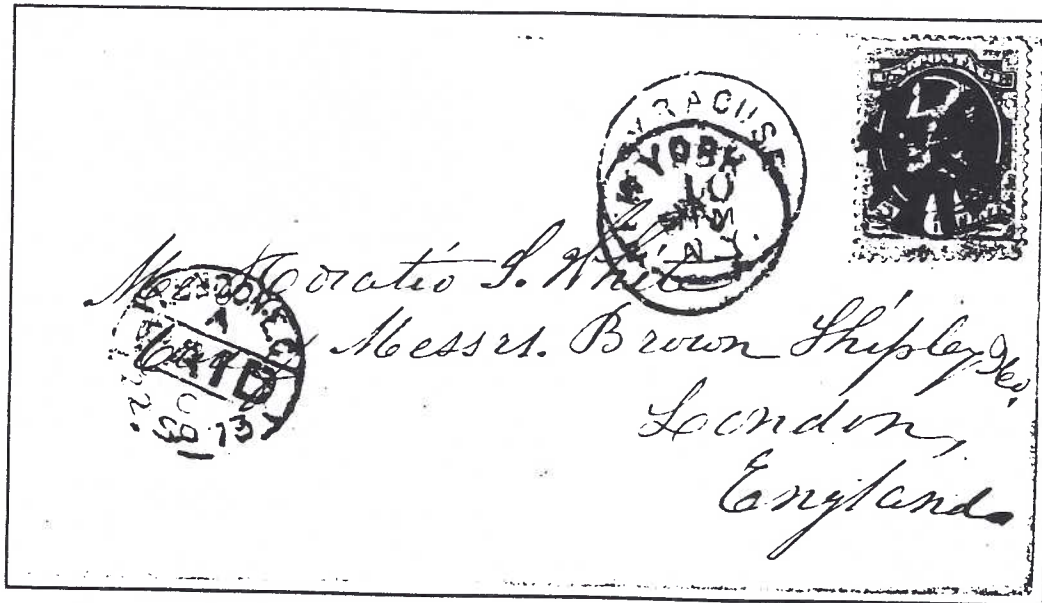 SYRACUSE
NEW YORK
10
N.Y.
Mr Horatio S. White
Messrs. Brown Shipley & Co.
London,
England
LONDON. E.C
A
PAID
C
22 SP 73